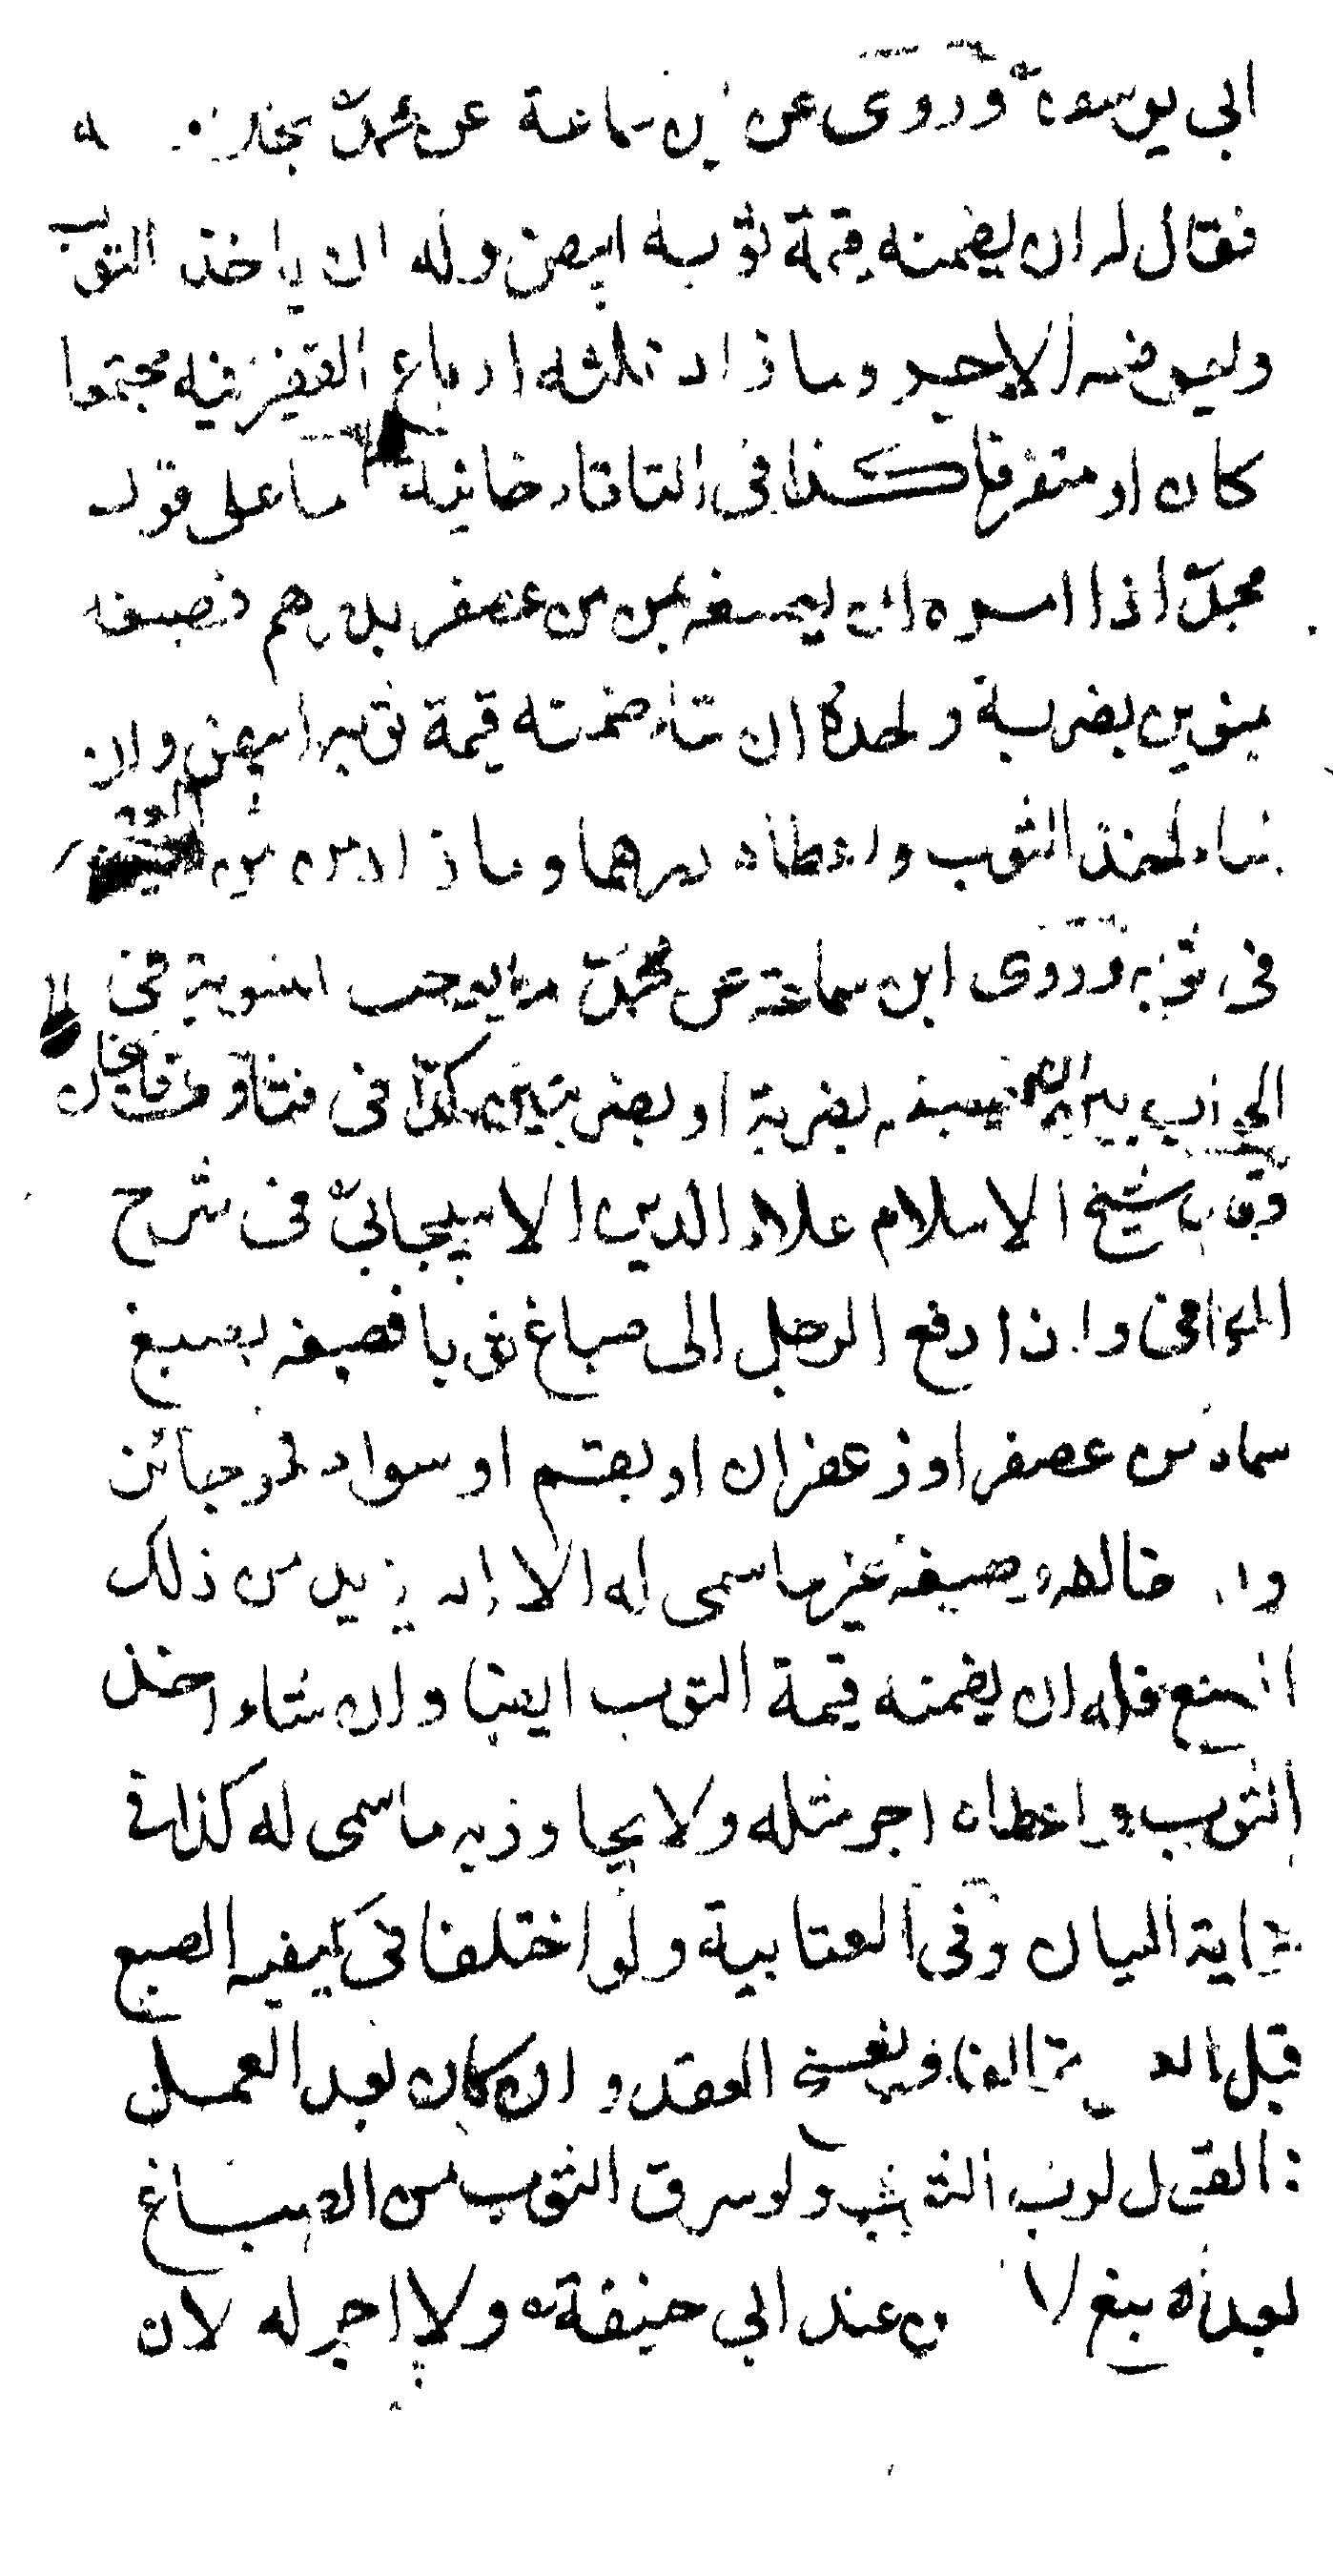 ابي يوسف وروى عن ابن سماعة عن محمد بخلافه
فقال له ان يضمنه قيمة ثوبه ابيض وله ان ياخذ الثوب
ويعوضه الاجر وما زاد ثلثه ارباع القفيز فيه مجتمعا
كان او متفرقا كذا فى التاتارخانية ما على قول
محمد اذا امره ان يصبغه بمن من عصفر بدرهم فصبغه
بمنوين بضربة واحدة ان شاء ضمنه قيمة ثوبه ابيض وان
شاء اخذ الثوب واعطاه درهما وما زاد من
فى ثوبه وروى ابن سماعة عن محمد ما يوجب التسوية فى
الجواب بين صبغه بضربة او بضربتين كذا فى فتاوى قاضيخان
وقال شيخ الاسلام علاء الدين الاسبيجابي فى شرح
الكافى واذا دفع الرجل الى صباغ ثوبا فصبغه بصبغ
سماه من عصفر او زعفران او بقم او سواد فهو جائز
وان خالفه وصبغه غير ما سمى له الا انه زيد من ذلك
الصبغ فله ان يضمنه قيمة الثوب ابيضا وان شاء اخذ
الثوب واعطاه اجر مثله ولا يجاوز به ما سمى له كذا فى
غاية البيان وفى العتابية ولو اختلفا فى كيفيه الصبغ
قبل العمل تحالفا ويفسخ العقد وان كان بعد العمل
القول لرب الثوب ولو سرق الثوب من الصباغ
بعد صبغ لا يضمن عند ابي حنيفة ولا اجر له لان